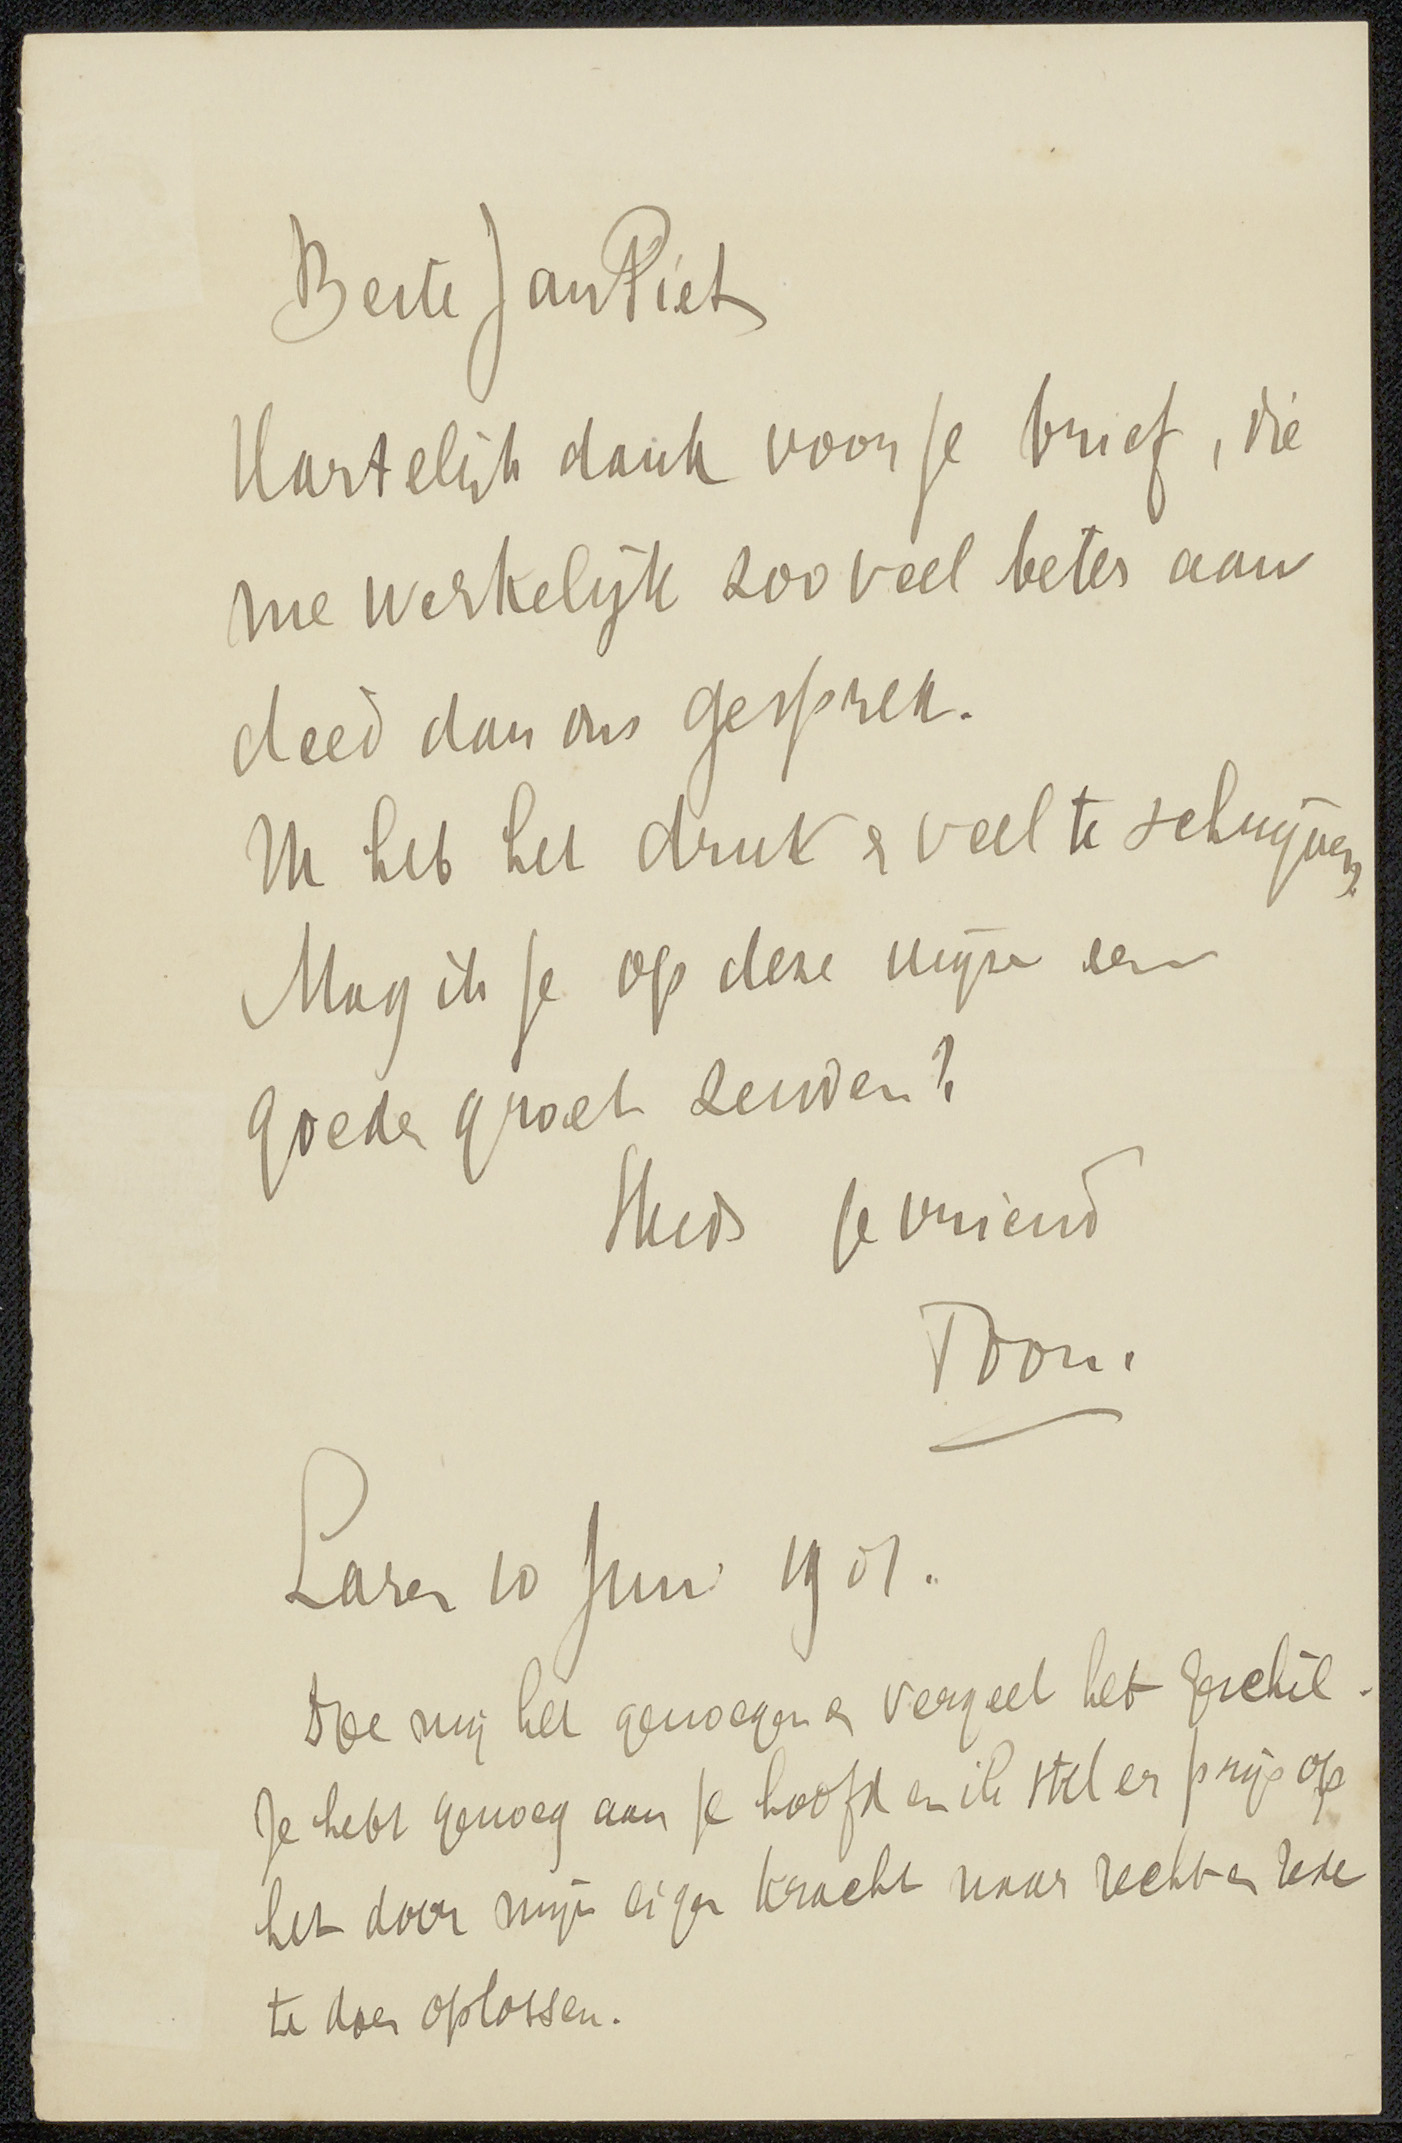 Beste Jan Piet
Hartelijk dank voor je brief, die
me werkelijk zooveel beter aan
deed dan ons gesprek.
Ik heb het druk & veel te schrijven.
Mag ik je op deze wijze een
goeden groet zenden?
Steeds je vriend
Toon.
Laren 10 Juni 1901.
Doe mij het genoegen en vergeet het geschil.
Je hebt genoeg aan je hoofd en ik stel er prijs op
het door mijn eigen kracht naar recht en rede
te doen oplossen.